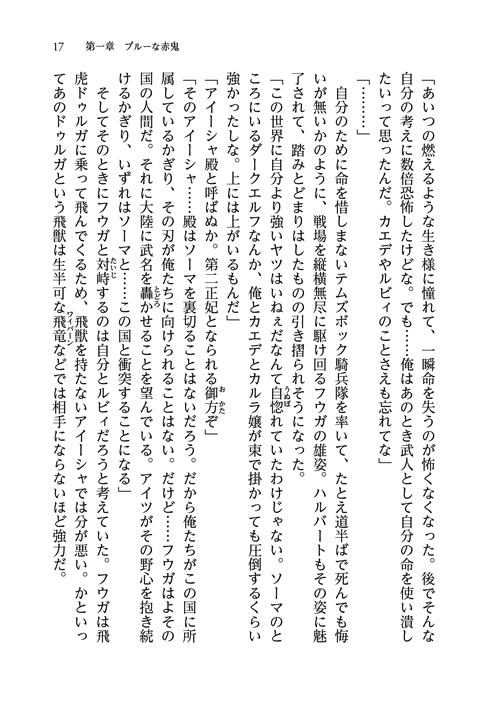 17　第一章　ブルーな赤鬼
「あいつの燃えるような生き様に憧れて、一瞬命を失うのが怖くなくなった。後でそんな
自分の考えに数倍恐怖したけどな。でも……俺はあのとき武人として自分の命を使い潰し
たいって思ったんだ。カエデやルビィのことさえも忘れてな」
「………」
　自分のために命を惜しまないテムズボック騎兵隊を率いて、たとえ道半ばで死んでも悔
いが無いかのように、戦場を縦横無尽に駆け回るフウガの雄姿。ハルバートもその姿に魅
了されて、踏みとどまりはしたものの引き摺られそうになった。
「この世界に自分より強いヤツはいねぇだなんて自惚れていたわけじゃない。ソーマのと
ころにいるダークエルフなんか、俺とカエデとカルラ嬢が束で掛かっても圧倒するくらい
強かったしな。上には上がいるもんだ」
「アイーシャ殿と呼ばぬか。第二正妃となられる御方ぞ」
「そのアイーシャ……殿はソーマを裏切ることはないだろう。だから俺たちがこの国に所
属しているかぎり、その刃が俺たちに向けられることはない。だけど……フウガはよその
国の人間だ。それに大陸に武名を轟かせることを望んでいる。アイツがその野心を抱き続
けるかぎり、いずれはソーマと……この国と衝突することになる」
　そしてそのときにフウガと対峙するのは自分とルビィだろうと考えていた。フウガは飛
虎ドゥルガに乗って飛んでくるため、飛獣を持たないアイーシャでは分が悪い。かといっ
てあのドゥルガという飛獣は生半可な飛竜などでは相手にならないほど強力だ。